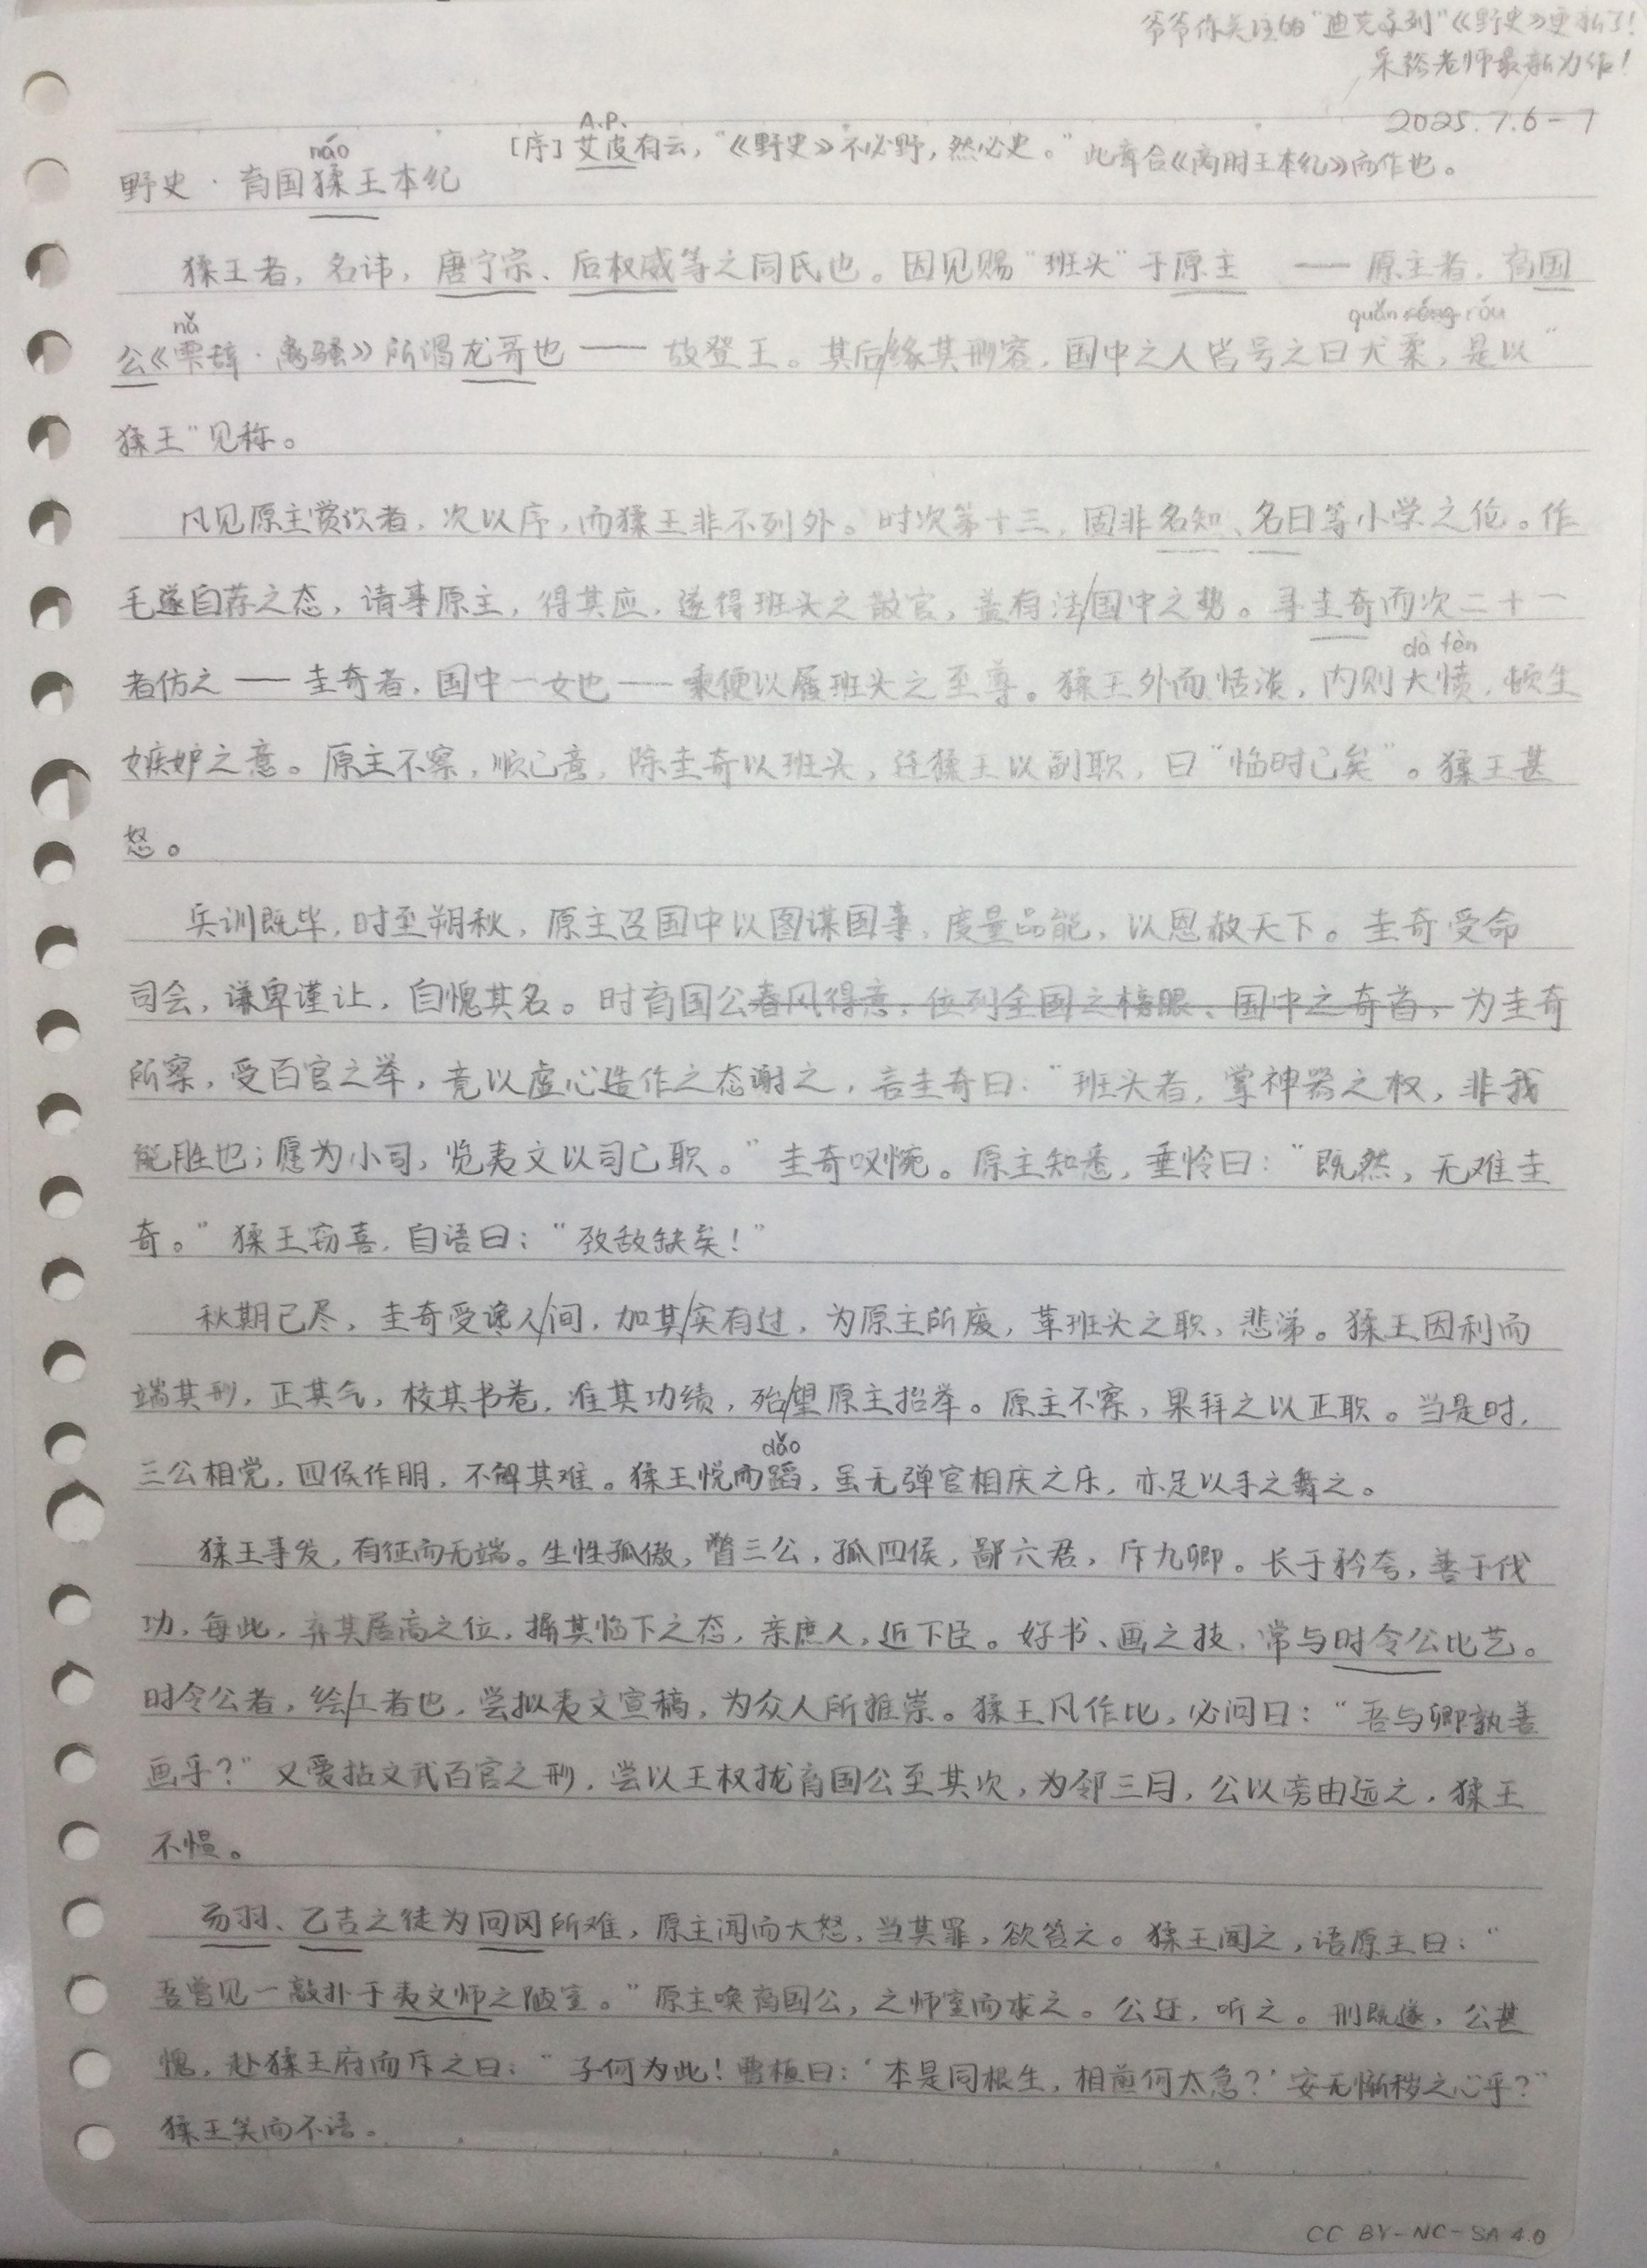 爷爷你关注的“迪克系列”《野史》更新了！
采稔老师最新力作！
2025.7.6-7
A.P.
[序]艾皮有云，“《野史》不必野，然必史。”此章合《离时王本纪》而作也。
náo
野史·育国猱王本纪
猱王者，名讳，唐宁宗、后权威等之同氏也。因见赐“班头”于原主——原主者，育国
nǎ quǎn róu
公《雫辞·离骚》所谓龙哥也——故登王。其后/缘其刑容，国中之人皆号之曰犬柔，是以“
猱王”见称。
凡见原主赏识者，次以序，而猱王非不列外。时次第十三，固非名知、名日等小学之伦。作
毛遂自荐之态，请事原主，得其应，遂得班头之散官，盖有法/国中之势。寻圭奇而次二十一
dà fèn
者仿之——圭奇者，国中一女也——乘便以履班头之至尊。猱王外而恬淡，内则大愤，顿生
嫉妒之意。原主不察，顺己意，除圭奇以班头，迁猱王以副职，曰“临时已矣”。猱王甚
怒。
兵训既毕，时至朔秋，原主召国中以图谋国事，度量品能，以恩赦天下。圭奇受命
司会，谦卑谨让，自愧其名。时育国公春风得意，位列全国之榜眼、国中之奇首，为圭奇
所察，受百官之举，竟以虚心造作之态谢之，言圭奇曰：“班头者，掌神器之权，非我
能胜也；愿为小司，览夷文以司己职。”圭奇叹惋。原主知悉，垂怜曰：“既然，无难圭
奇。”猱王窃喜，自语曰：“政敌缺矣！”
秋期已尽，圭奇受谗人/间，加其/实有过，为原主所废，革班头之职，悲涕。猱王因利而
端其刑，正其气，校其书卷，准其功绩，殆/望原主招举。原主不察，果拜之以正职。当是时，
dǎo
三公相党，四侯作朋，不解其难。猱王悦而蹈，虽无弹官相庆之乐，亦足以手之舞之。
猱王事发，有征而无端。生性孤傲，瞥三公，孤四侯，鄙六君，斥九卿。长于矜夸，善于伐
功，每此，弃其居高之位，摒其临下之态，亲庶人，近下臣。好书、画之技，常与时令公比艺。
时令公者，绘/工者也，尝拟夷文宣稿，为众人所推崇。猱王凡作比，必问曰：“吾与卿孰善
画乎？”又爱拈文武百官之刑，尝以王权拢育国公至其次，为邻三月，公以旁由远之，猱王
不愠。
励羽、乙吉之徒为同冈所难，原主闻而大怒，当其罪，欲笞之。猱王闻之，语原主曰：“
吾曾见一敲扑于夷文师之陋室。”原主唤育国公，之师室而求之。公迂，听之。刑既遂，公甚
愧，赴猱王府而斥之曰：“子何为此！曹植曰：‘本是同根生，相煎何太急？’安无惭秽之心乎？”
猱王笑而不语。
CC BY-NC-SA 4.0